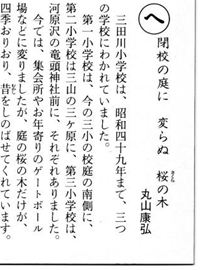 へ
閉校の庭に 変らぬ 桜の木
丸山康弘
三田川小学校は、昭和四十九年まで、三つ
の学校にわかれていました。
第一小学校は、今の三小の校庭の南側に、
第二小学校は三山の三ヶ原に、第三小学校は、
河原沢の竜頭神社前に、それぞれありました。
今では、集会所やお年寄りのゲートボール
場などに変りましたが、庭の桜の木だけが、
四季おりおり、昔をしのばせてくれています。